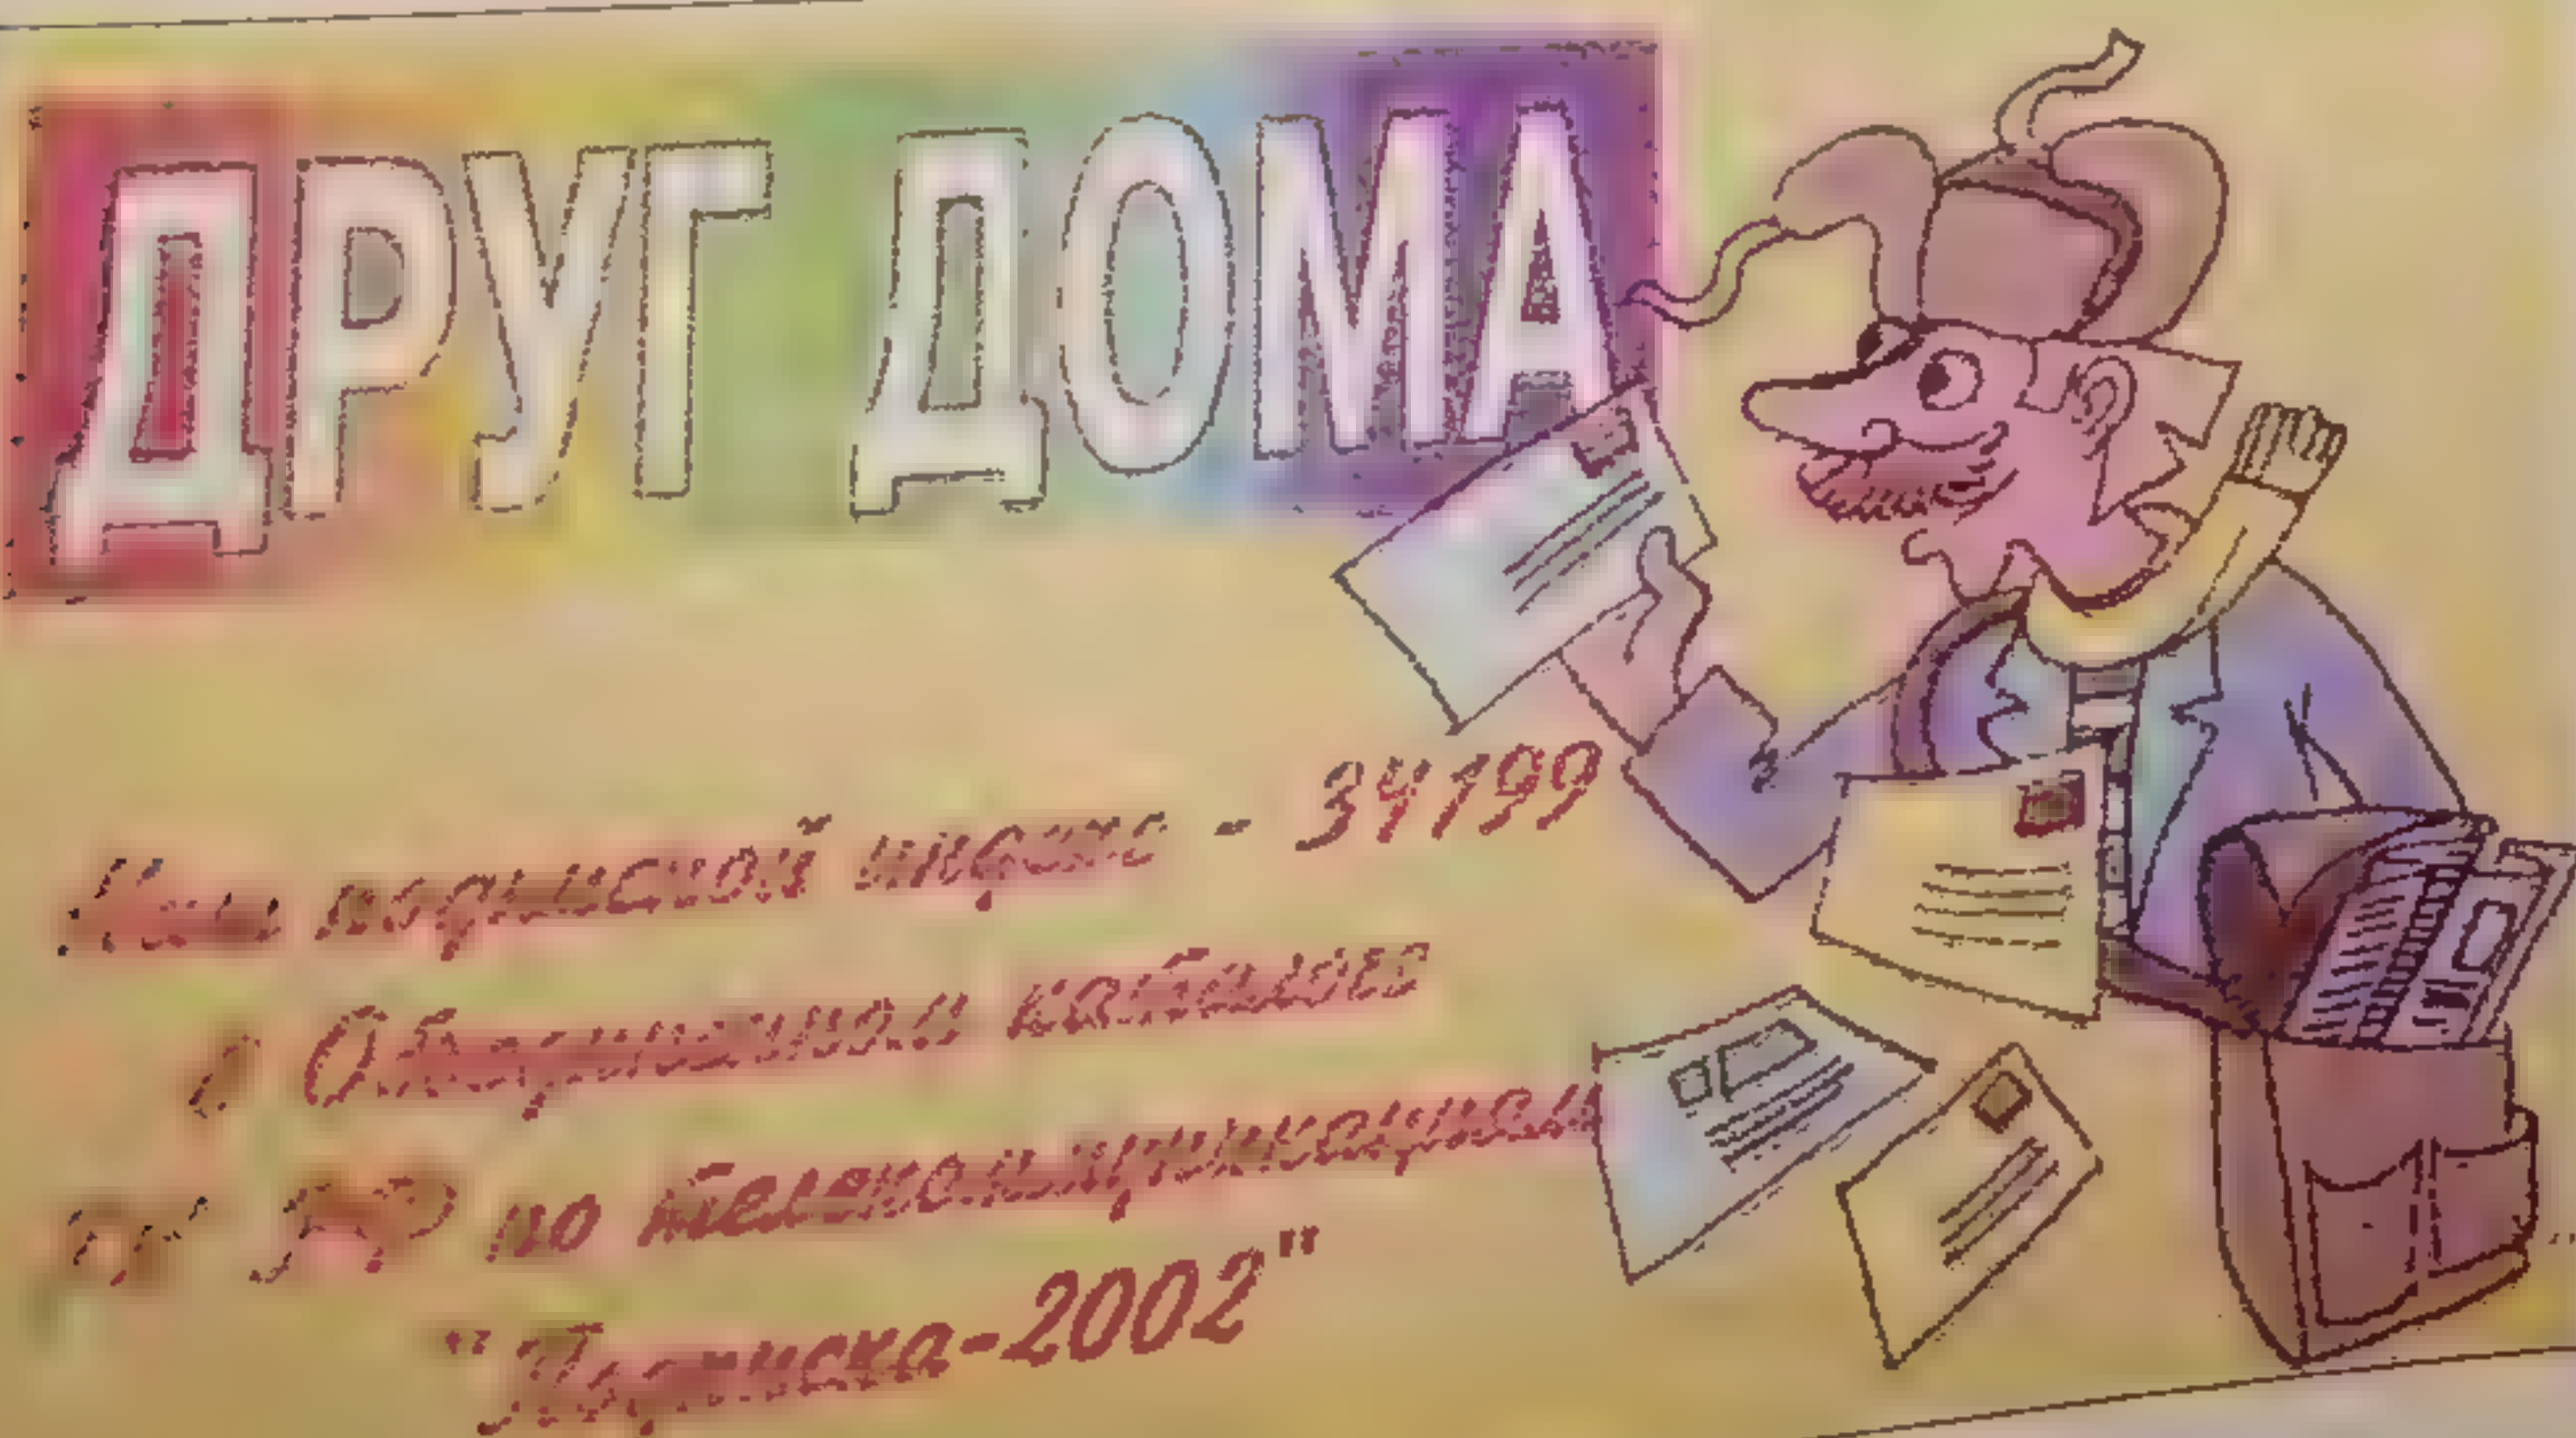 ДРУГ ДОМА
Наш подписной индекс - 34199
в Объединённом каталоге
по телекоммуникациям
"Подписка-2002"